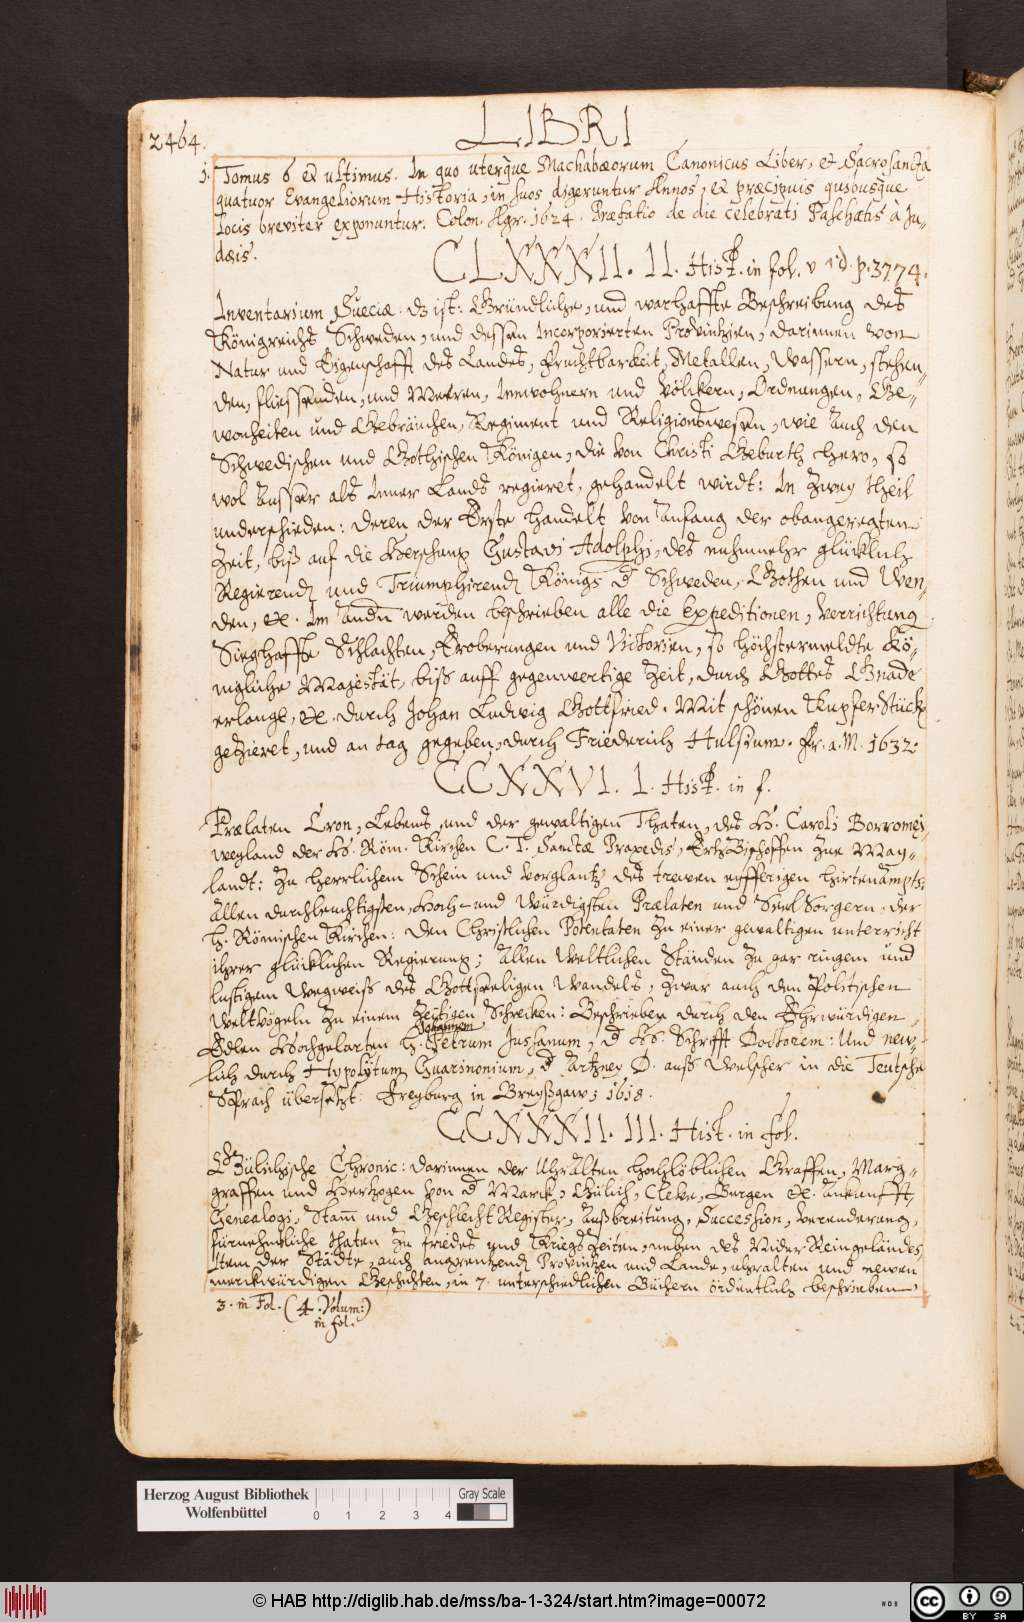 2464.
LIBRI
j. Tomus 6 et ultimus. In quo uterque Machabæorum Canonicus Liber, et Sacrosancta
quatuor Evangeliorum Historia, in suos digeruntur Annos, et præcipuis quibusque
locis breviter exponuntur. Colon. Agr. 1624. Præfatio de die celebrati Paschatis à Ju-
dæis.
CLXXXII. 11. Hist. in fol. v 1 d. p. 3774.
Inventarium Sueciæ. dz ist: Gründliche, und warhaffte Beschreibung des
Königreichs Schweden, und dessen Incorporierten Provintzien, darinnen von
Natur und Eigenschafft des Landes, Fruchtbarkeit, Metallen, Wassern, stehen-
den, fliessenden, und Meeren, Innwohnern und Völckern, Ordnungen, Ge-
wonheiten und Gebräuchen, Regiment und Religionswesen, wie auch den
Schwedischen und Gothischen Königen, die von Christi Geburth hero, so
wol ausser als Inner Lands regieret, gehandelt wirdt: In zwey Theil
underschieden: deren der Erste handelt von Anfang der obangeregten
Zeit, biß auf die Herschung Gustavi Adolphi, des nuhnmehr glücklich
Regierend und Triumphirend Königs d Schweden, Gothen und Wen-
den, etc. Im Andn werden beschrieben alle die Expeditionen, Verrichtung
Sieghaffte Schlachten, Eroberungen und Victorien, so höchstermeldte Kö-
nigliche Majestät, biß auff gegenwertige Zeit, durch Gottes Gnade
erlangt, etc. durch Johan Ludwig Gottfried. Mit schönen Kupfer Stück
gezieret, und an tag gegeben, durch Friederich Hulsium. Fr. a. M. 1632.
CCXXVI. 1. Hist. in f.
Prælaten Cron, Lebens, und der gewaltigen Thaten, des H. Caroli Borromei,
weyland der H. Röm. Kirchen C. T. Sanctæ Praxedis, ErtzBischoffen zue May-
landt: Zu herrlichem Schein und Vorglantz des trewen eyfferigen Hirtenampts:
Allen durchleuchtigsten, Hoch- und Würdigsten Prælaten und SeelSorgern, der
H. Römischen Kirchen: den Christlichen Potentaten zu einer gewaltigen unterricht
ihrer glücklichen Regierung: Allen Weltlichen Ständen zu gar ringem und
lustigem Wegweiß des Gottseeligen Wandels, Zwar auch den Politischen
Weltvögeln zu einem zeitigen Schrecken: Beschrieben durch den Ehrwürdigen
Edlen Hochgelarten H. Johannem Petrum Jussanum, d H. Schrifft Doctorem: Und new-
lich durch Hypolÿtum Guarinonium, d Artzney D. auß Welscher in die Teutsche
Sprach übersetzt. Freyburg in Breyßgaw, 1618.
CCXXXII. 111. Hist. in fol.
Gülichische Chronic: darinnen der Uhralten Hochlöblichen Graffen, Marg-
graffen und Hertzogen von d Marck, Gülich, Cleve, Bergen etc. Ankunfft,
Genealogi, Stam und Geschlecht Register, Außbreitung, Succession, Verenderung,
fürnehmliche Thaten zu Friedes und Kriegs Zeiten, neben des Nider Reingeländes
Item der Städte, auch angrentzend Provintzen und Lande, uhralten und newen
merckwürdigen Geschichten, in 7. unterschiedlichen Büchern ordentlich beschrieben,
3. in Fol. (4. Volum:)
in fol.
Herzog August Bibliothek
Wolfenbüttel
0 1 2 3 4
Gray Scale
© HAB http://diglib.hab.de/mss/ba-1-324/start.htm?image=00072
cc BY SA